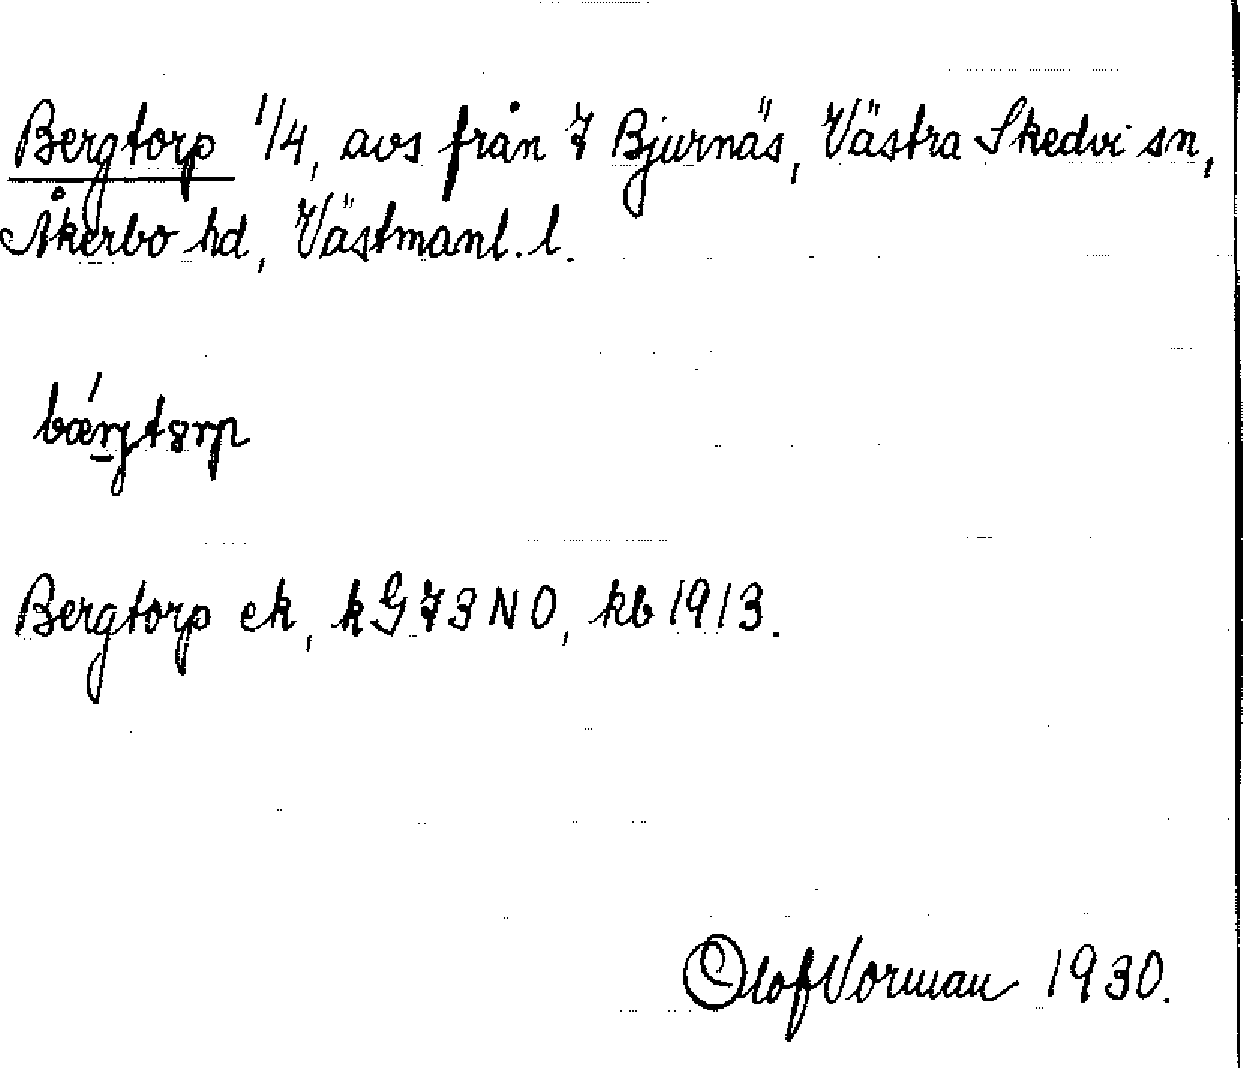 Bergtorp 1/4, avs från 7 Bjurnäs, Västra Skedvi sn,
Åkerbo hd, Västmanl. l.
Bergtorp ek, kG 73 NO, kb 1913.
Olof Vorman 1930.